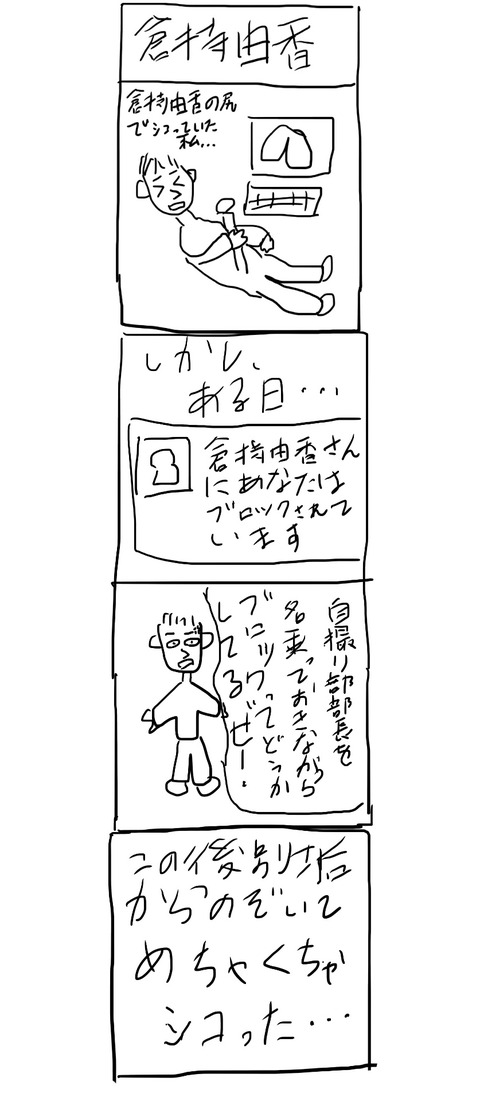 倉持由香
倉持由香の尻
でシコっていた
私…
しかし、
ある日…
倉持由香さん
にあなたは
ブロックされて
います
自撮り部部長を
名乗っておきながら
ブロックってどうか
してるぜー!
この後別垢
からのぞいて
めちゃくちゃ
シコった…